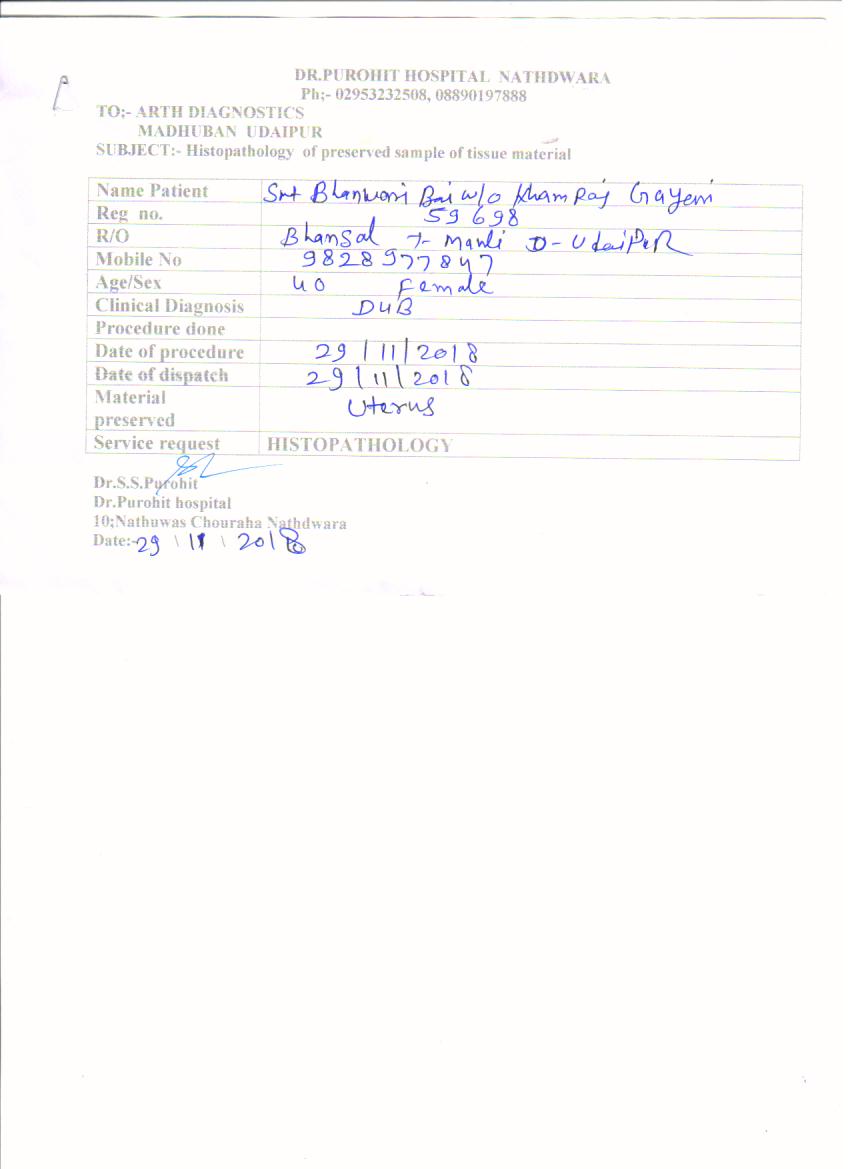 DR.PUROHIT HOSPITAL NATHDWARA
Ph;- 02953232508, 08890197888
TO;- ARTH DIAGNOSTICS
MADHUBAN UDAIPUR
SUBJECT:- Histopathology of preserved sample of tissue material
Name Patient Smt Bhanwari Bai w/o Kham Raj
Reg no. 59698
R/O Bhansal T- Manli D- UdaiPuR
Mobile No 9828977847
Age/Sex 40 Female
Clinical Diagnosis DUB
Procedure done
Date of procedure 29/11/2018
Date of dispatch 29/11/2018
Material
preserved Uterus
Service request HISTOPATHOLOGY
Dr.S.S.Purohit
Dr.Purohit hospital
10;Nathuwas Chouraha Nathdwara
Date:-29 \ 11 \ 2018